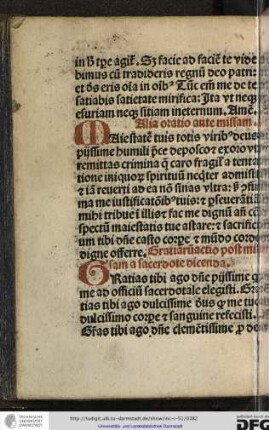 in hͦ tꝑe agiſ. Sꝫ facie ad faciē te vide
bimus cū tradideris regnū deo patri:
et ds eris oīa in oībꝰ Tūc em̄ me de te
ſatiabis ſatietate mirifica: Ita vt neqꝫ
eſuriam neqꝫ ſitiam ineternum. Amē.
Alia oratio ante miſſam
MAieſtatē tuis totis viribꝰ deus
pijſſime humili p̄ce depoſco: ⁊ exoro vt
remittas crimina q̄ caro fragil' a tenta
tione iniquorꝫ ſpirituū
⁊ iā reuerti ad ea nō ſinas vltra:
ma me iuſtificatōibꝰ tuis: ⁊ pſeuerātiā
mihi tribue ī illis ⁊ fac me dignū añ cō
ſpectū maieſtatis tue aſtare: ⁊ ſacrific
um tibi dñe caſto corꝑe ⁊ mūdo corde
digne offerre. Gratiarūactio poſt miſ
ſam a ſacerdote dicenda.
GRatias tibi ago dñe pijſſime
me ad officiū ſacerdotale elegiſti. Gr
tias tibi ago dulciſſime dꝰs ꝙ me tuo
dulciſſimo corꝑe ⁊ ſanguine refeciſti.
Gr̄as tibi ago dñe clemētiſſime ꝙ de
http://tudigit.ulb.tu-darmstadt.de/show/inc-v-52/0382
Universitäts- und Landesbibliothek Darmstadt
DFG